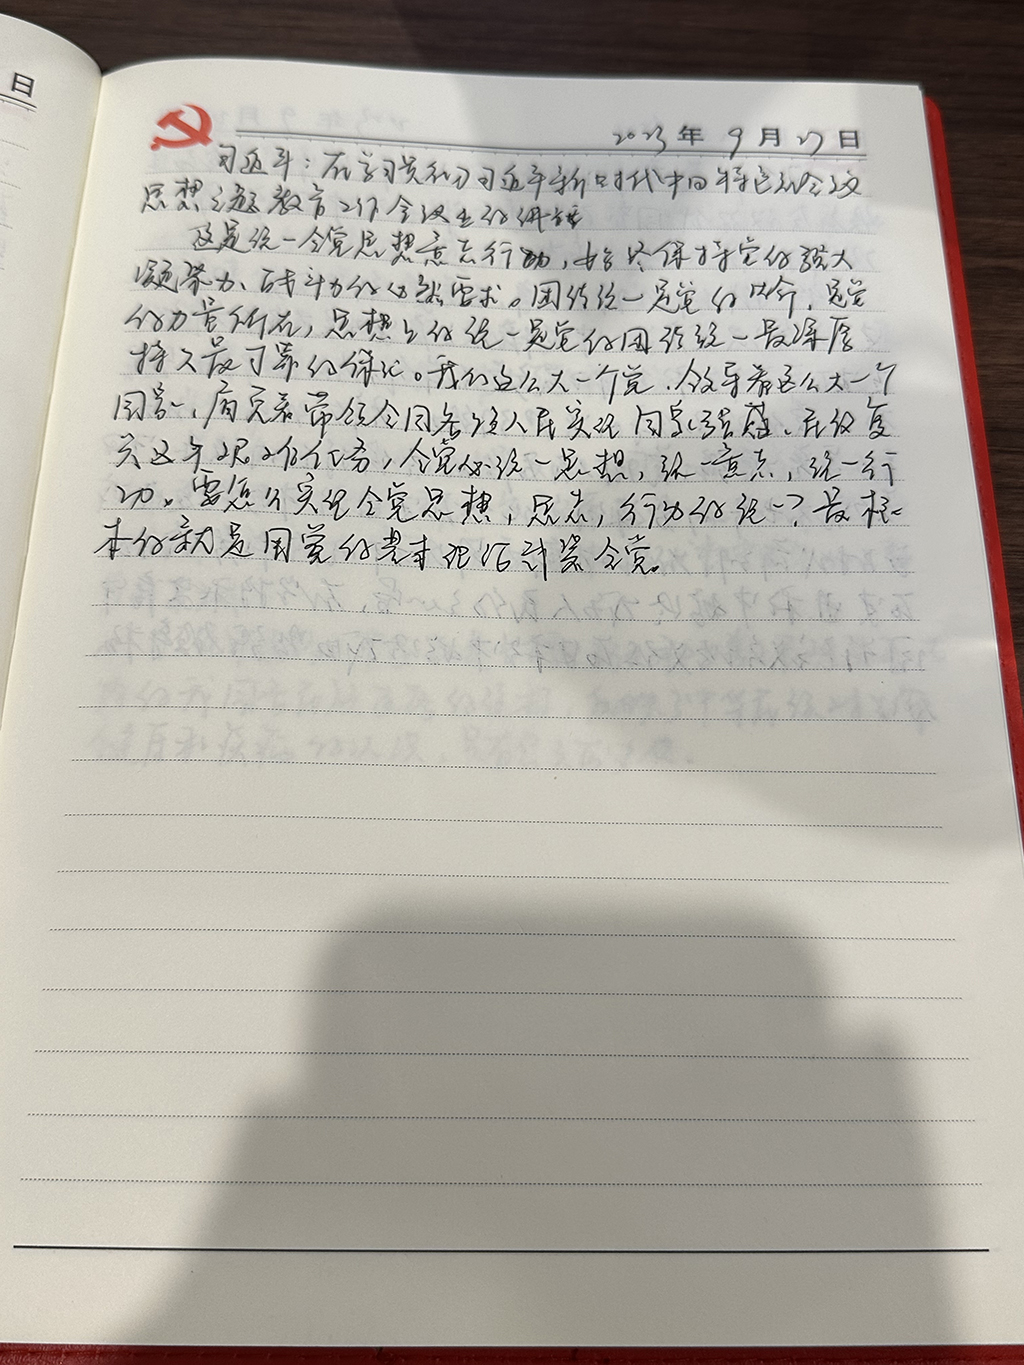 日
2023年9月27日
习近平:在学习贯彻习近平新时代中国特色社会主义
思想主题教育工作会议上的讲话
这是统一全党思想意志行动,始终保持党的强大
凝聚力、战斗力的必然要求。团结统一是党的生命,是党
的力量所在,思想上的统一是党的团结统一最深厚
持久最可靠的保证。我们这么大一个党,领导着这么大一个
国家,肩负着带领全国各族人民实现国家强盛、民族复
兴这个艰难任务,全党必须统一思想,统一意志,统一行
动。要怎么实现全党思想,意志,行动的统一?最根
本的就是用党的基本理论武装全党。